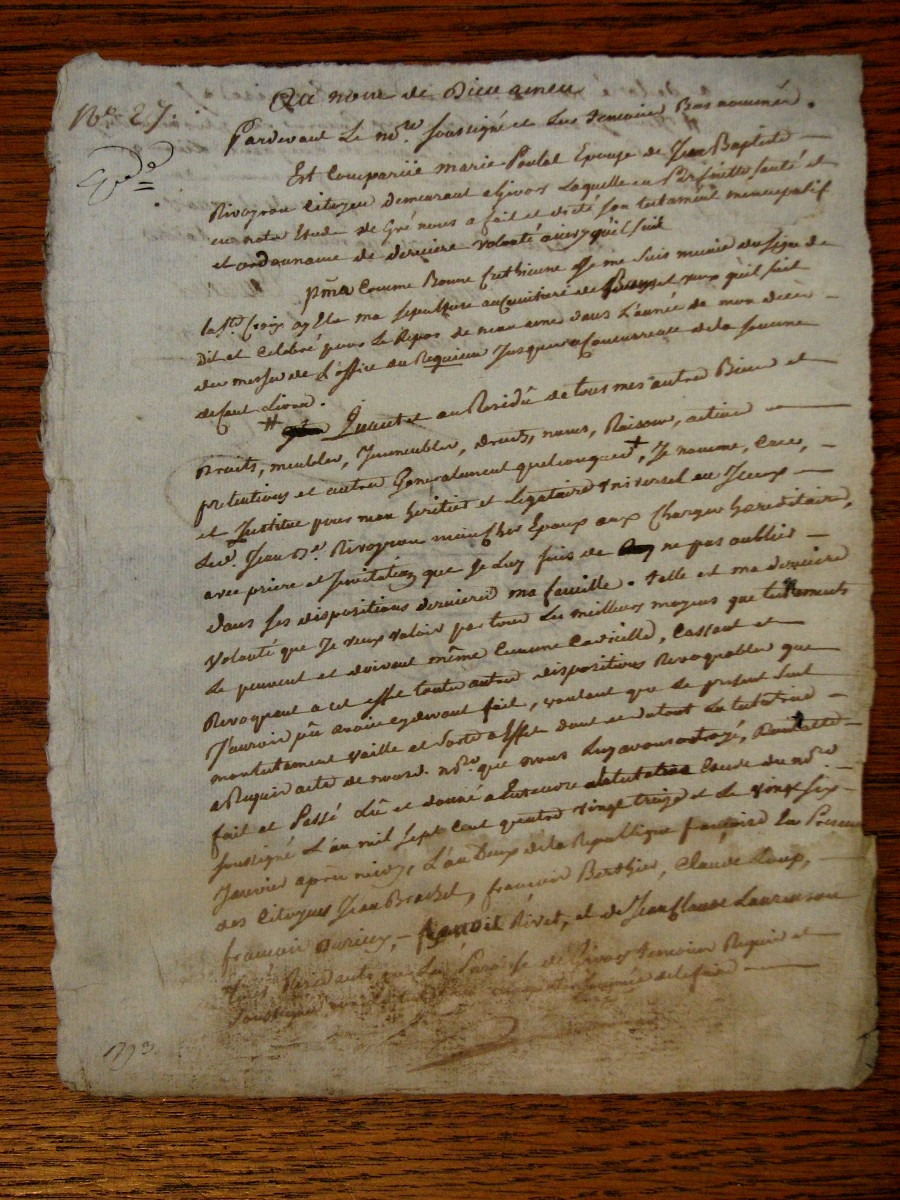 Nº 27.
Au nom de Dieu amen
Pardevant Le no.re soussigné et Les temoins Bas nommés.
Est Comparüe marie Poulat Epouse de Jean Baptiste
Rivoyron Citoyen demeurant a Givors Laquelle en parfaitte santé et
en notre Etude de Gré nous a fait et dicté son testament nuncupatif
et ordonnance de derniere volonté ainsy qu'il suit
pma Comme Bonne Crethienne Je me suis munie du signe de
la S.te Croix ay Elu ma sepulture au Cimitiere de et veux qu'il soit
Dit et Celebré pour Le Repos de mon ame dans L'année de mon décès
des messes de L'office du Requiem Jusques a Concurrence de la somme
de Cent Livres.
# Quant et au Residû de tous mes autres Biens et
Droits, meubles, Immeubles, droits, noms, Raisons, actions
pretentions et autres Generalement quelconques +, Je nomme, Crée,
et Institue pour mon heritier et Legataire universel au Jceux
Led. Jean B.te Rivoyron mon cher Epoux aux Charges hereditaires,
avec priere et Invitation que Je Luy fais de ne pas oublier
dans ses dispositions dernieres ma famille. telle est ma derniere
Volonté que Je veux valoir par tous Les meilleurs moyens que testaments
Le peuvent et doivent même Comme Codicille, Cassant et
Revoquant a cet effet toutes autres dispositions Revoquables que
J'aurois pû avoir cydevant fait, voulant que Le present seul
mon testament vaille et sorte a Effet dont et du tout La testatrice
a Requis acte de nousd. no.re que nous Luy avons octroyé,
fait et Passé Lû et donné a Entendre a la testatrice Etude du no.re
soussigné L'an mil sept Cent quatre vingt treize et Le vingt six
Janvier après midy, L'an Deux de la Republique françoise En Presence
des Citoyens Jean Brachet, françois Berthier, Claude Loup,
françois Durieux, Benoit Rivet, et de Jean Claude Laurenson
tous Residants en La Paroisse de Givors temoins Requis et
soussignés
1793.